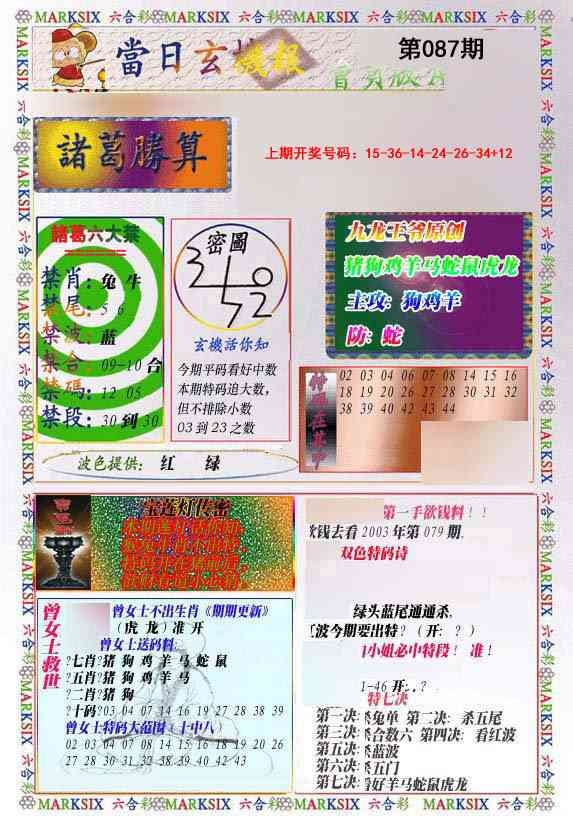 MARKSIX 六合彩 MARKSIX 六合彩 MARKSIX 六合彩 MARKSIX 六合彩
當日玄機報
第087期
諸葛勝算
上期开奖号码：15-36-14-24-26-34+12
諸葛六大禁
禁肖：兔 牛
禁尾：5 6
禁波：蓝
禁合：09-10 合
禁碼：12 05
禁段：30 到 30
密圖
玄機活你知
今期平码看好中数
本期特码追大数，
但不排除小数
03 到 23 之数
九龙王爷原创
猪狗鸡羊马蛇鼠虎龙
主攻：狗鸡羊
防：蛇
特码在其中
02 03 04 06 07 08 14 15 16
18 19 20 26 27 28 30 31 32
38 39 40 42 43 44
波色提供： 红 绿
宝莲灯传密
曾女士救世
曾女士不出生肖《期期更新》
（虎 龙）准 开
曾女士送码料:
?七肖?猪 狗 鸡 羊 马 蛇 鼠
?五肖?猪 狗 鸡 羊 马
?二肖?猪 狗
?十码?03 04 07 14 16 19 27 28 38 39
曾女士特码大范围〖十中八〗
02 03 04 07 08 14 15 16 18 19 20 26
27 28 30 31 32 38 39 40 42 43
第一手欲钱料！！
欲钱去看 2003 年第 079 期.
双色特码诗
绿头蓝尾通通杀.
波今期要出特？（ 开： ？）
小姐必中特段！ 准！
1-46 开:..?
特七决
第一决: 杀兔单 第二决: 杀五尾
第三决: 杀合数六 第四决: 看红波
第五决: 杀蓝波
第六决: 杀五门
第七决: 看好羊马蛇鼠虎龙
MARKSIX 六合彩 MARKSIX 六合彩 MARKSIX 六合彩 MARKSIX 六合彩